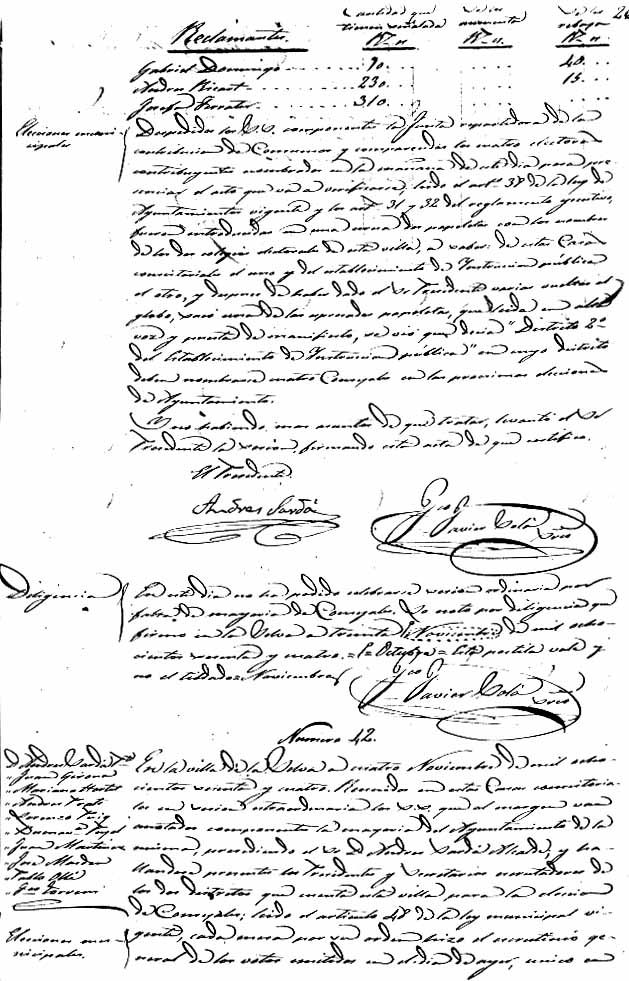 Cantidad que Se les Se les 24
Reclamantes. tienen señalada aumenta rebaja
Rs. n. Rs. n. Rs. n.
Gabriel Domingo 90 40
Andres Ricart 230 15
Josefa Ferrater 310
Elecciones municipales
Despedidos los S.S. componentes la Junta repartidora de la
contribucion de Consumos y comparecidos los cuatro electores
contribuyentes nombrados en la mañana de este dia para pre-
senciar el acto que va a verificarse, leido el artº 38 de la ley de
Ayuntamientos vigente y los artˢ 31 y 32 del reglamento ejecutivo,
fueron introducidas en una urna dos papeletas con los nombres
de los dos colegios electorales de esta villa, a saber: de estas Casas
consistoriales el uno y del establecimiento de Instruccion pública
el otro, y despues de haber dado el Sr Presidente varias vueltas al
globo, sacó una de las espresadas papeletas, que leida en alta
voz y puesta de manifiesto, se vió que decia "Distrito 2º
del Establecimiento de Instruccion pública" en cuyo distrito
deben nombrarse cuatro Concejales en las procsimas elecciones
de Ayuntamiento.
Y no habiendo mas asuntos de que tratar, levantó el Sr
Presidente la sesion, firmando esta acta de que certifico.
El Presidente
Andres Sardá
Javier Solá
Srio
Diligencia
En este dia no ha podido celebrarse sesion ordinaria por
falta de mayoria de Concejales. Se anota por diligencia que
firmo en la Selva a treinta Noviembre de mil ocho-
cientos sesenta y cuatro. = Octubre = Esta postila vale y
no el tildado = Noviembre
Javier Solá
Srio
Numero 42.
D. Andres Sardá Pte
" Juan Girona
" Mariano Hortet
" Andres Pratt
" Lorenzo Puig
" Juan Montserrat
" Jose Masdeu
" Pablo Ollé
Elecciones mu-
nicipales.
En la villa de la Selva a cuatro Noviembre de mil ocho-
cientos sesenta y cuatro. Reunidos en estas Casas consistoria-
les en sesion estraordinaria los S.S. que al margen van
anotados componentes la mayoria del Ayuntamiento de la
misma, presidiendo el Sr D. Andres Sardá Alcalde, y ha-
llandose presentes los Presidentes y Secretarios escrutadores de
los dos distritos que cuenta esta villa para la eleccion
de Concejales; leido el articulo 48 de la ley municipal vi-
gente, cada mesa por su orden hizo el escrutinio ge-
neral de los votos emitidos en el dia de ayer, unico en